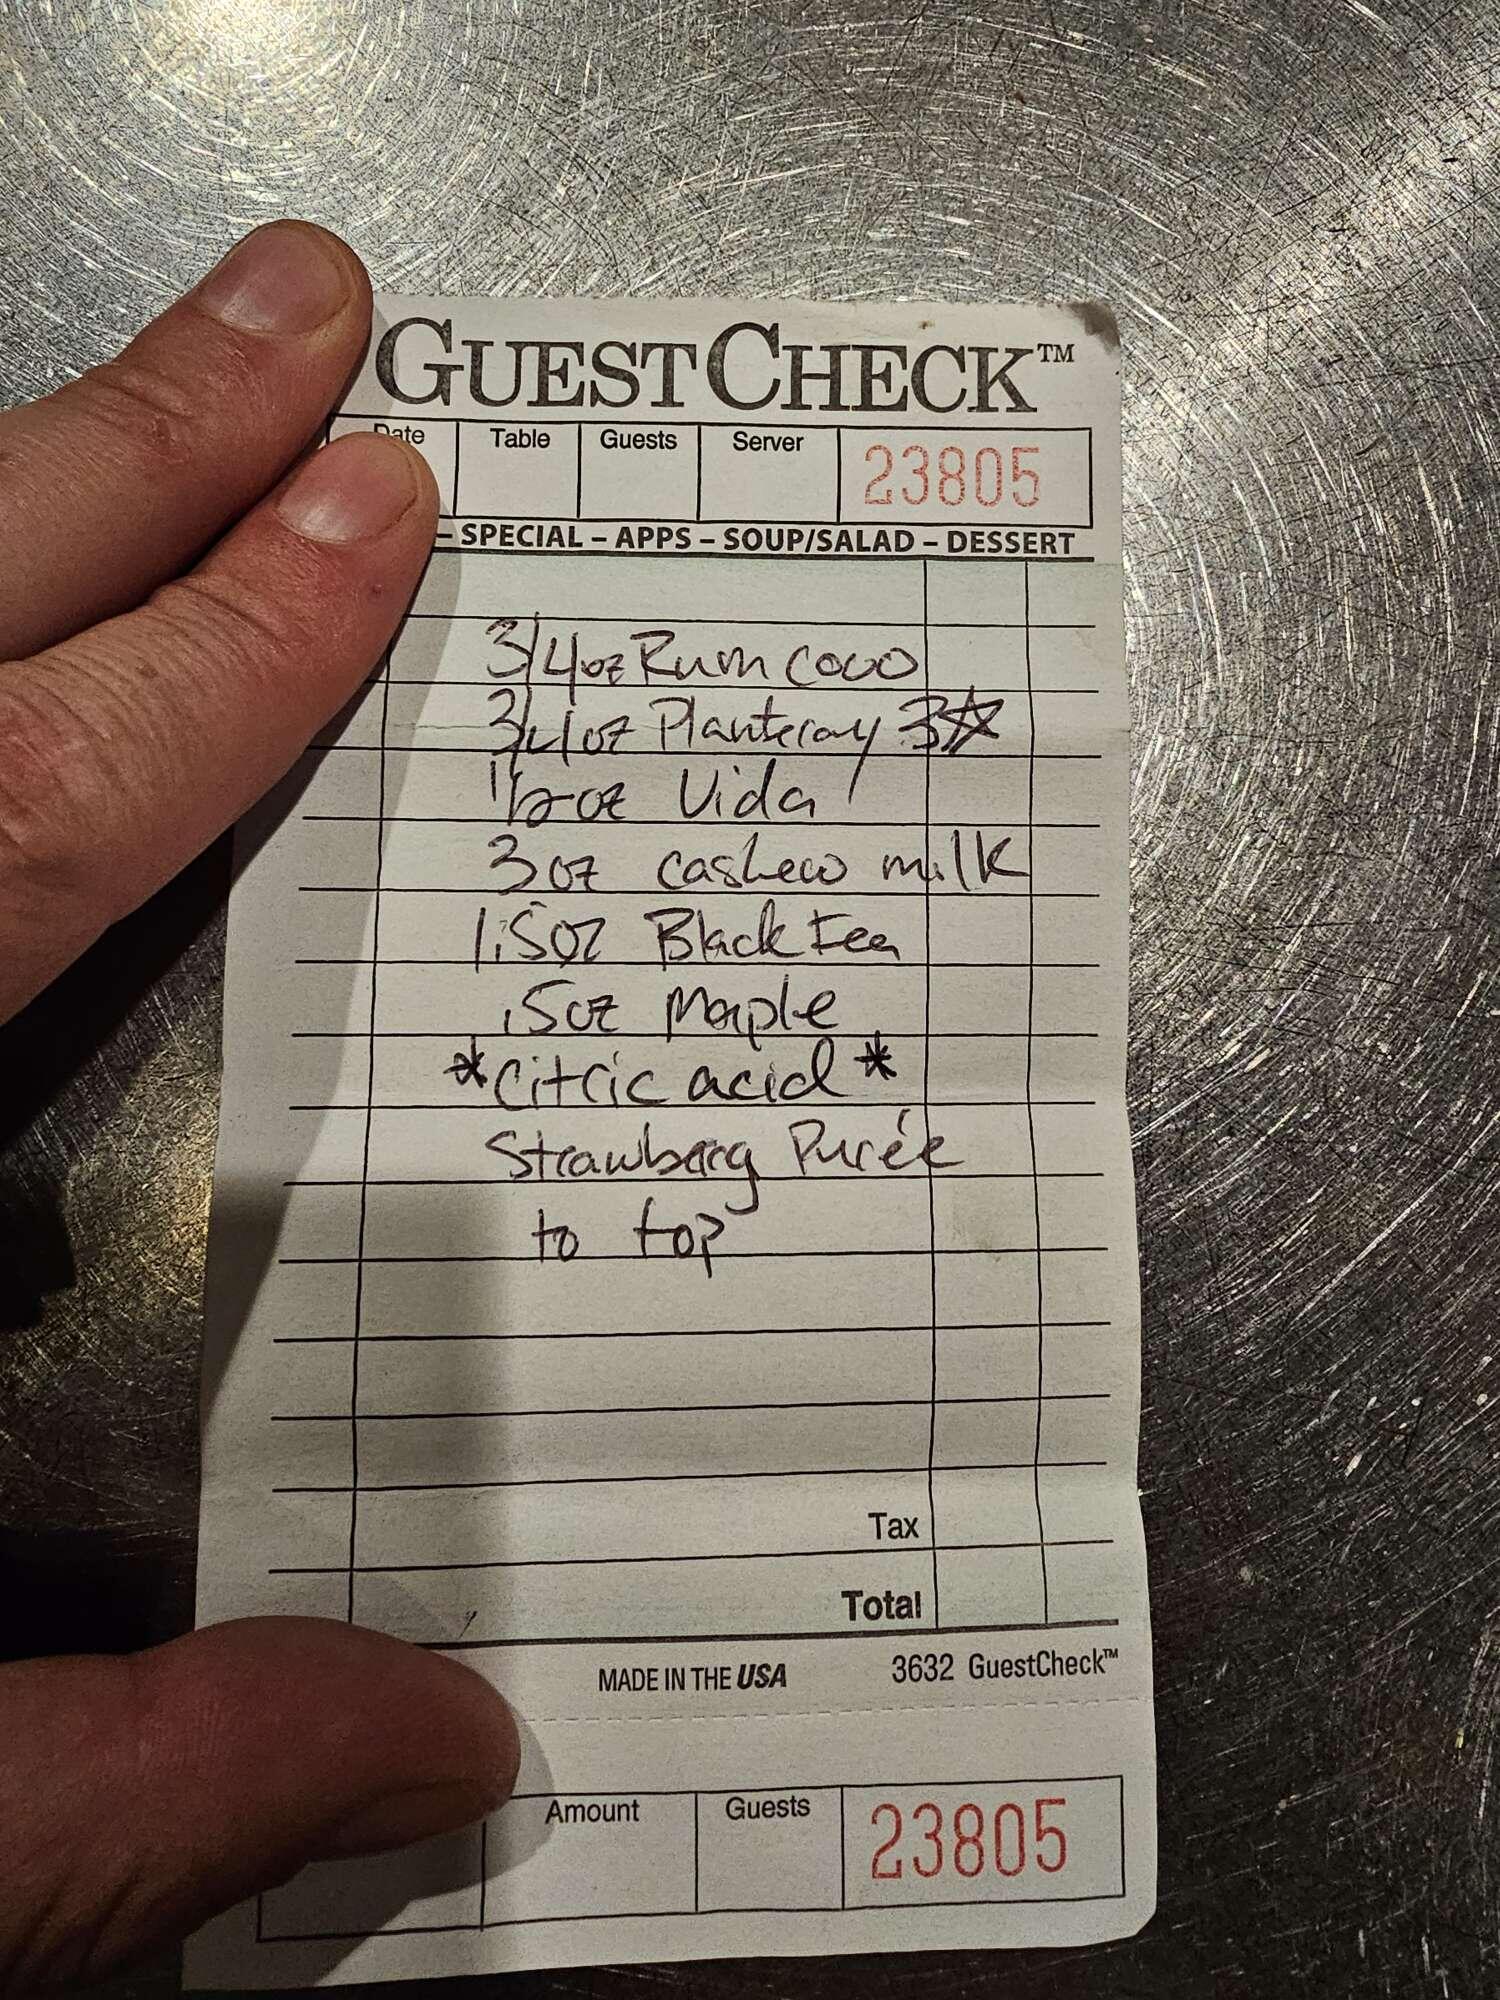 GUESTCHECK™
Date Table Guests Server 23805
– SPECIAL – APPS – SOUP/SALAD – DESSERT
3/4oz Rum coco
3/4oz Planteray 3☆
1/2oz Vida
3oz cashew milk
1.5oz Black tea
.5oz Maple
*Citric acid*
Strawberry Purée
to top
Tax
Total
MADE IN THE USA 3632 GuestCheck™
Amount Guests 23805